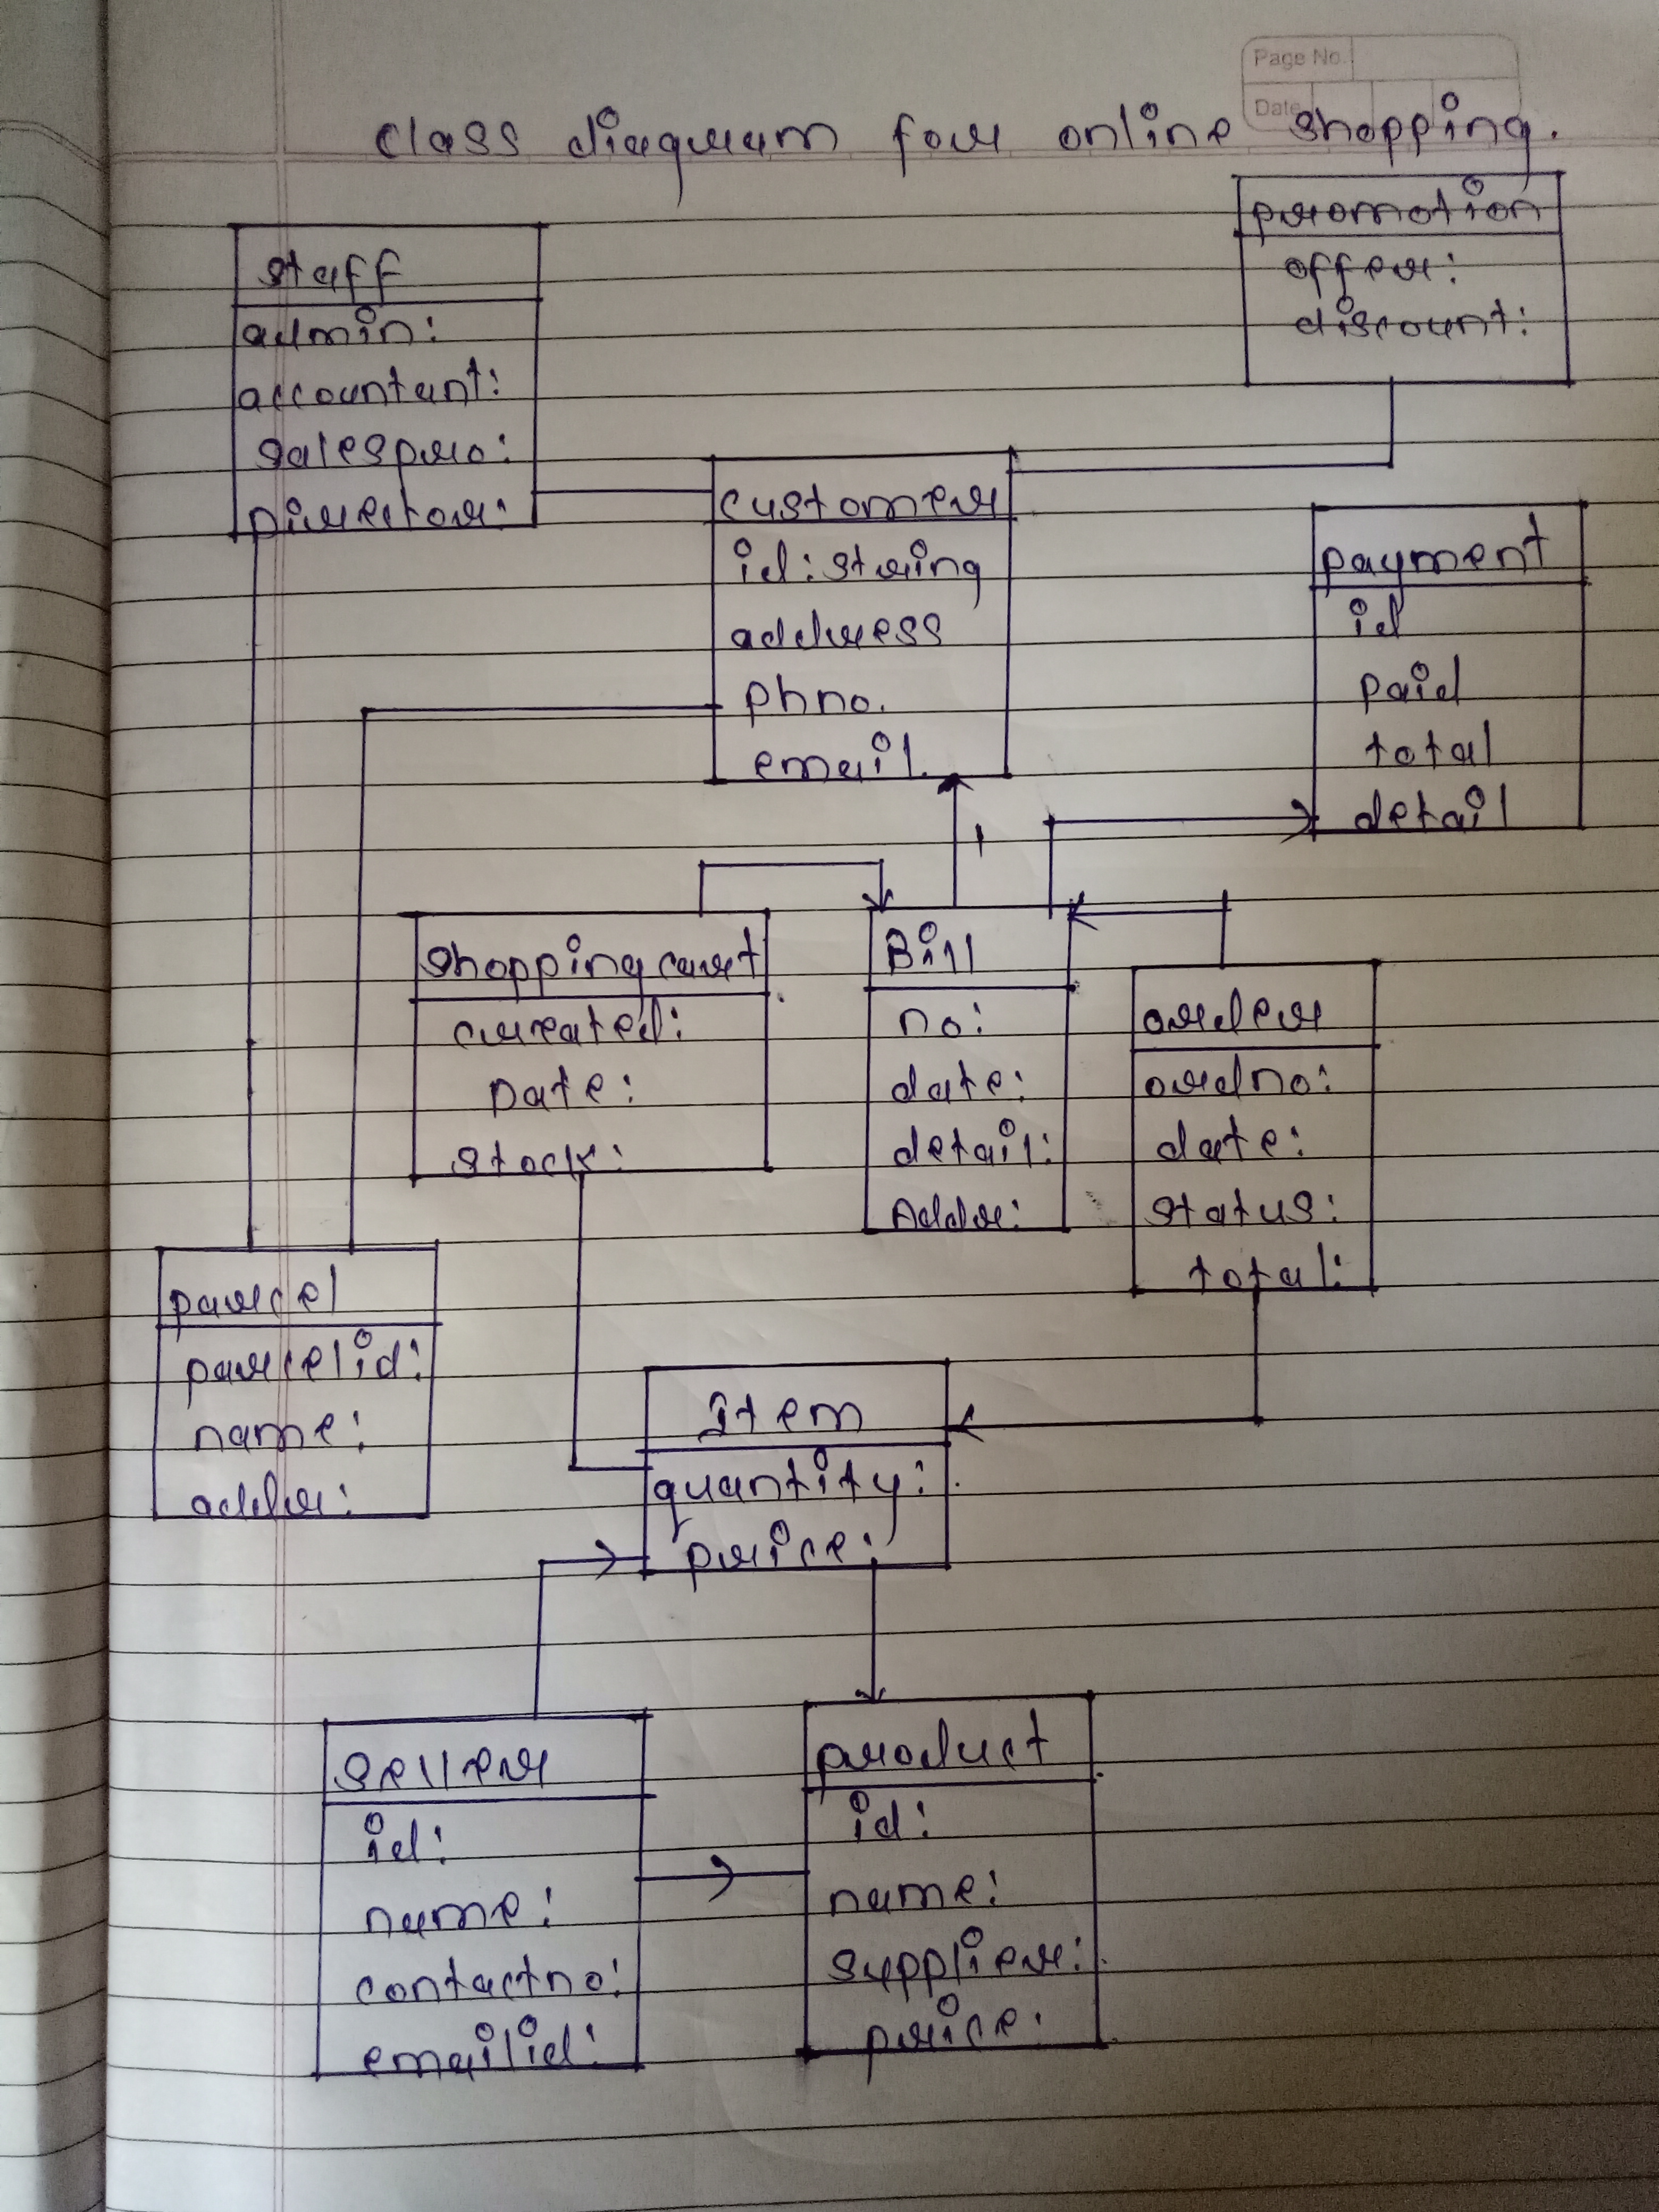 Page No.
Date
class diagram for online shopping.
promotion
offer:
discount:
staff
admin:
accountant:
salespro:
Director:
customer
id: string
address
phno.
email.
payment
id
paid
total
detail
1
shopping cart
created:
Date:
stock:
Bill
no:
date:
detail:
Addr:
order
ordno:
date:
status:
total:
parcel
parcelid:
name:
addr:
Item
quantity:
price:
seller
id:
name:
contactno:
emailid:
product
id:
name:
supplier:
price: